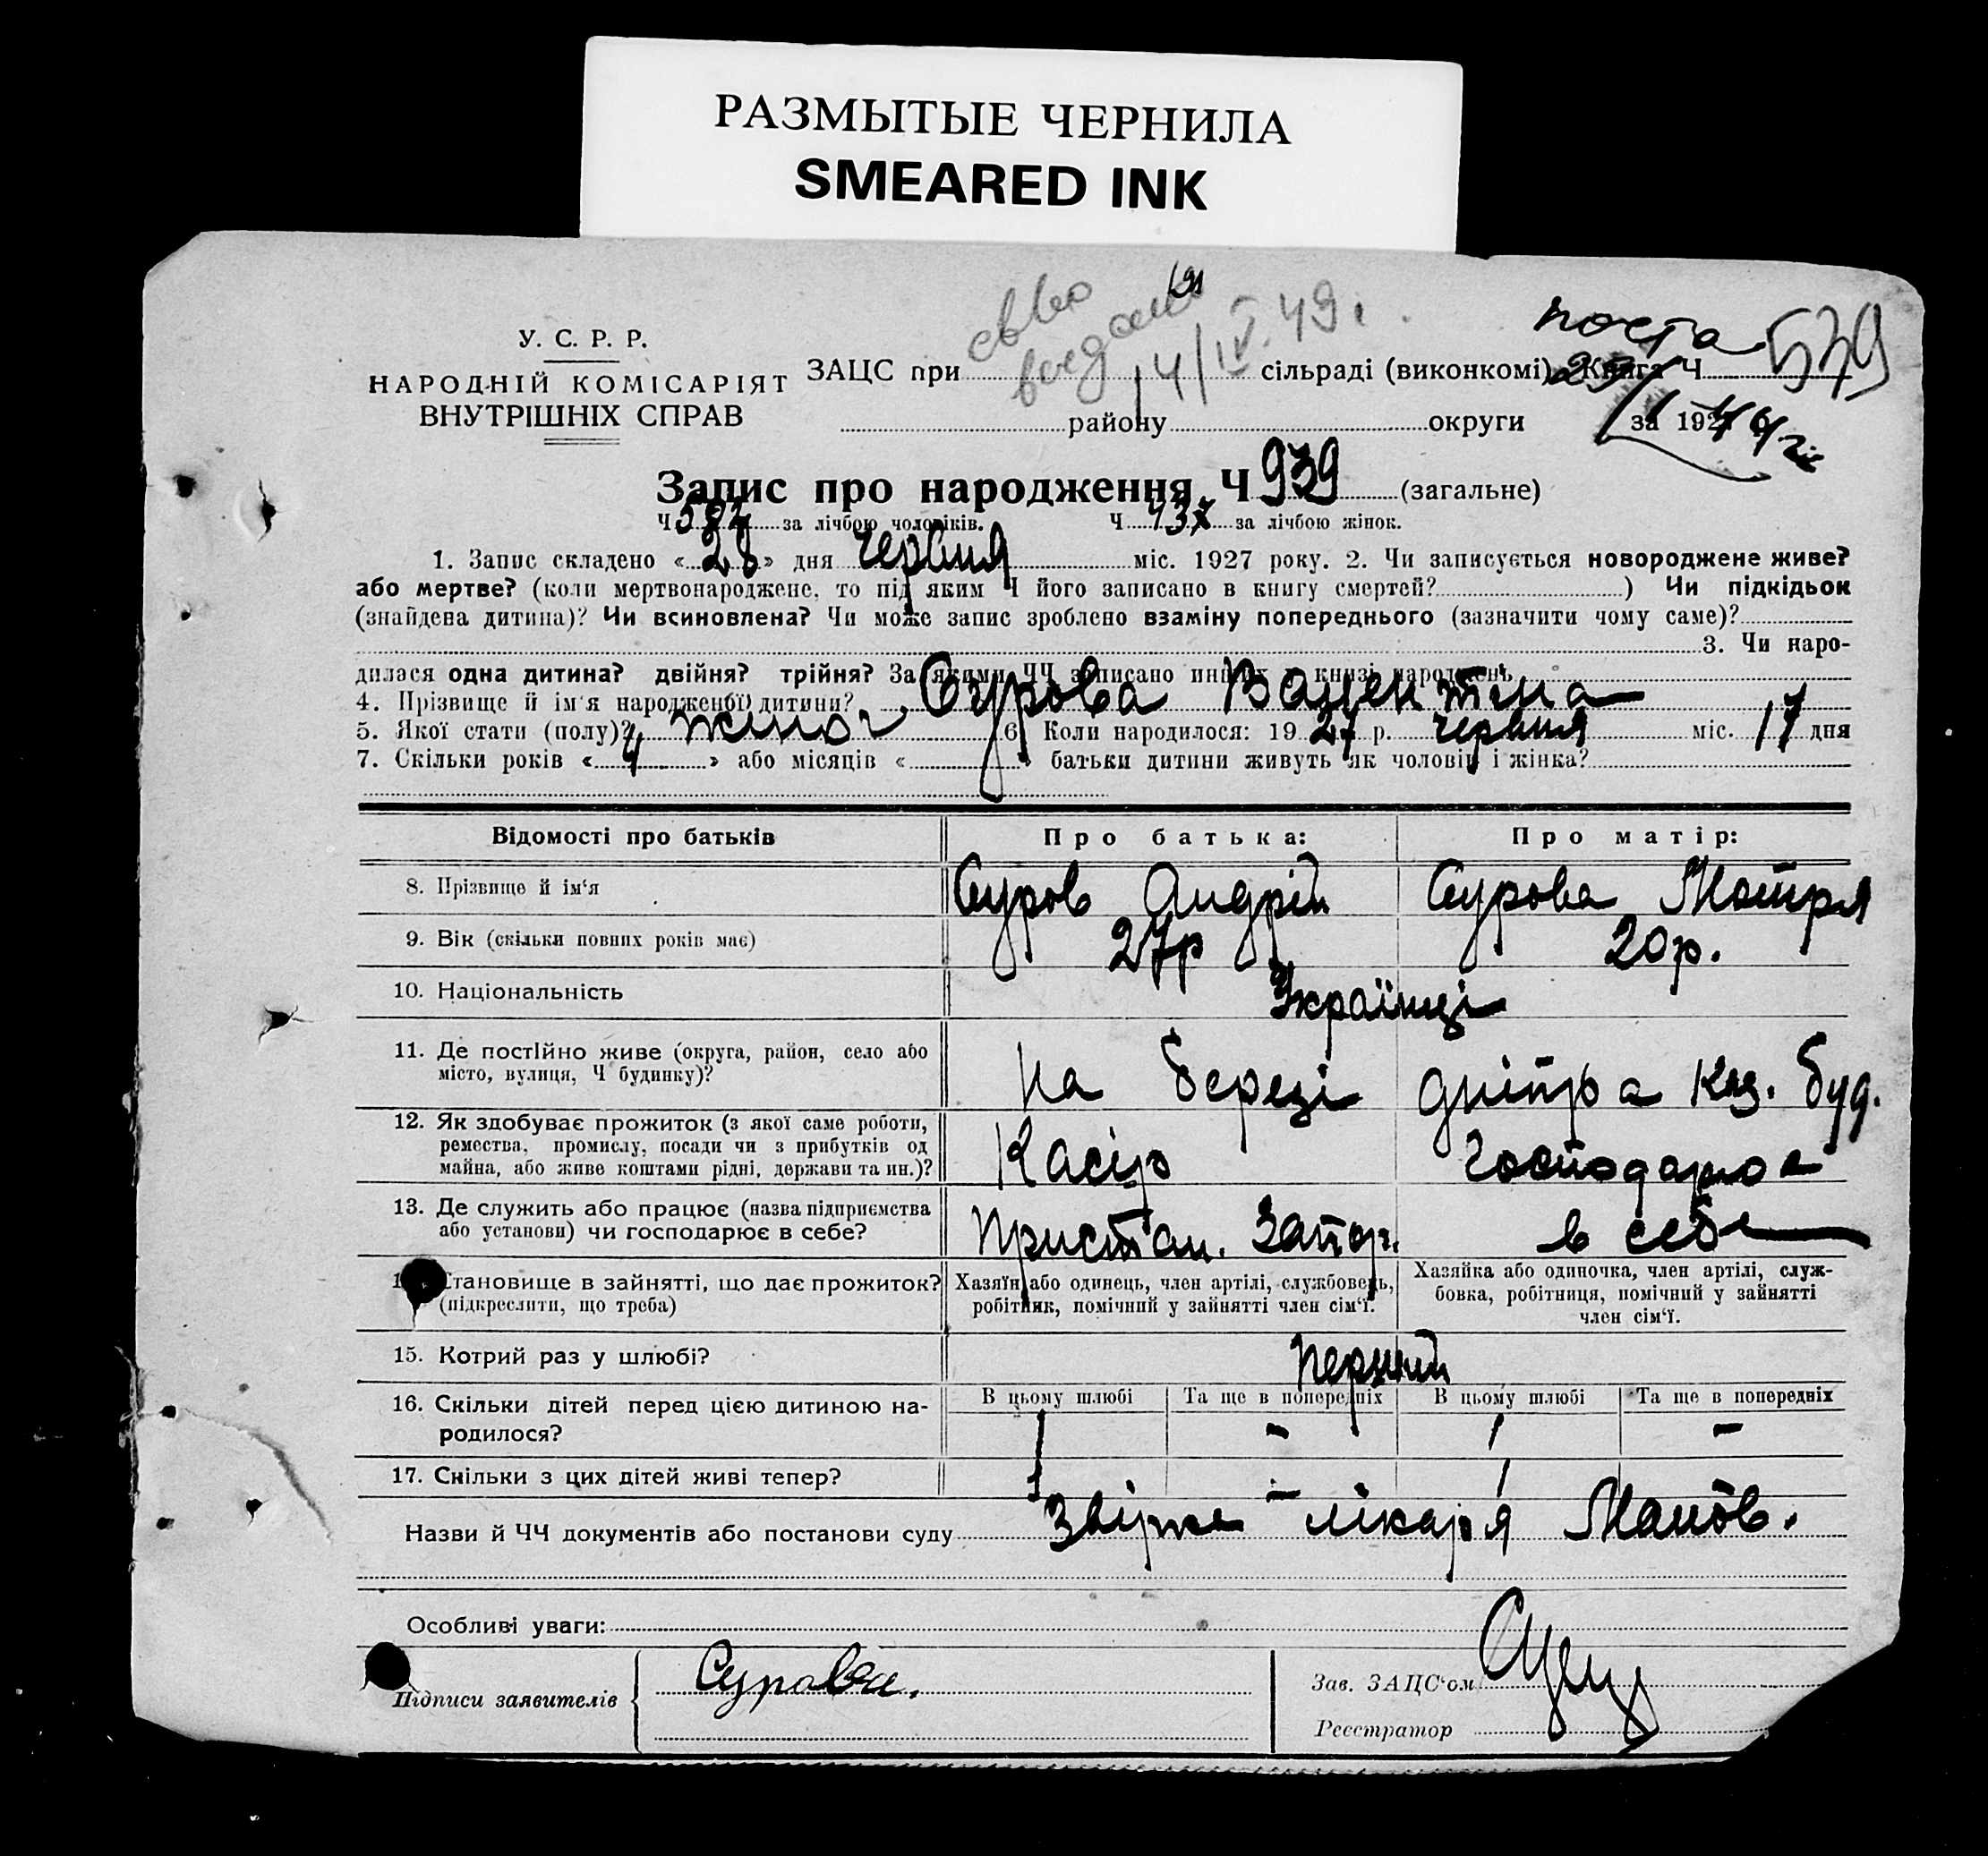 РАЗМЫТЫЕ ЧЕРНИЛА
SMEARED INK
У. С. Р. Р.
НАРОДНІЙ КОМІСАРІЯТ
ВНУТРІШНІХ СПРАВ
ЗАЦС при сільраді (виконкомі) Книга Ч 539
14/IV.49г.
района округи за 192
Запис про народження Ч 939 (загальне)
Ч за лічбою чоловіків. Ч 437 за лічбою жінок.
1. Запис складено «28» дня червня міс. 1927 року. 2. Чи записується новороджене живе?
або мертве? (коли мертвонароджене, то під яким Ч його записано в книгу смертей? ) Чи підкідьок
(знайдена дитина)? Чи всиновлена? Чи може запис зроблено взаміну попереднього (зазначити чому саме)?
3. Чи наро-
дилася одна дитина? двійня? трійня? За якими ЧЧ записано инших в книзі народжень
4. Прізвище й ім'я народженої) дитини? Сурова Валентіна
5. Якої стати (полу)? жіноч 6. Коли народилося: 19 27 р. червня міс. 17 дня
7. Скільки років «4» або місяців « » батьки дитини живуть як чоловік і жінка?
Відомості про батьків Про батька: Про матір:
8. Прізвище й ім'я Суров Андрій Сурова Мотря
9. Вік (скільки повних років має) 27р 20р.
10. Національність Українці
11. Де постійно живе (округа, район, село або
місто, вулиця, Ч будинку)? на березі Дніпра Каз. буд.
12. Як здобуває прожиток (з якої саме роботи,
ремества, промислу, посади чи з прибутків од
майна, або живе коштами рідні, держави та ин.)? Касір господарює
13. Де служить або працює (назва підприємства
або установи) чи господарює в себе? Пристан. Запор. в себе
Становище в зайнятті, що дає прожиток?
(підкреслити, що треба)
Хазяїн або одинець, член артілі, службовець,
робітник, помічний у зайнятті член сім'ї.
Хазяйка або одиночка, член артілі, служ-
бовка, робітниця, помічний у зайнятті
член сім'ї.
15. Котрий раз у шлюбі? перший
16. Скільки дітей перед цією дитиною на-
родилося?
В цьому шлюбі Та ще в попередніх В цьому шлюбі Та ще в попередніх
1 - 1 -
17. Скільки з цих дітей живі тепер? 1 - 1
Назви й ЧЧ документів або постанови суду лікаря
Особливі уваги:
Підписи заявителів Сурова.
Зав. ЗАЦС'ом
Реєстратор